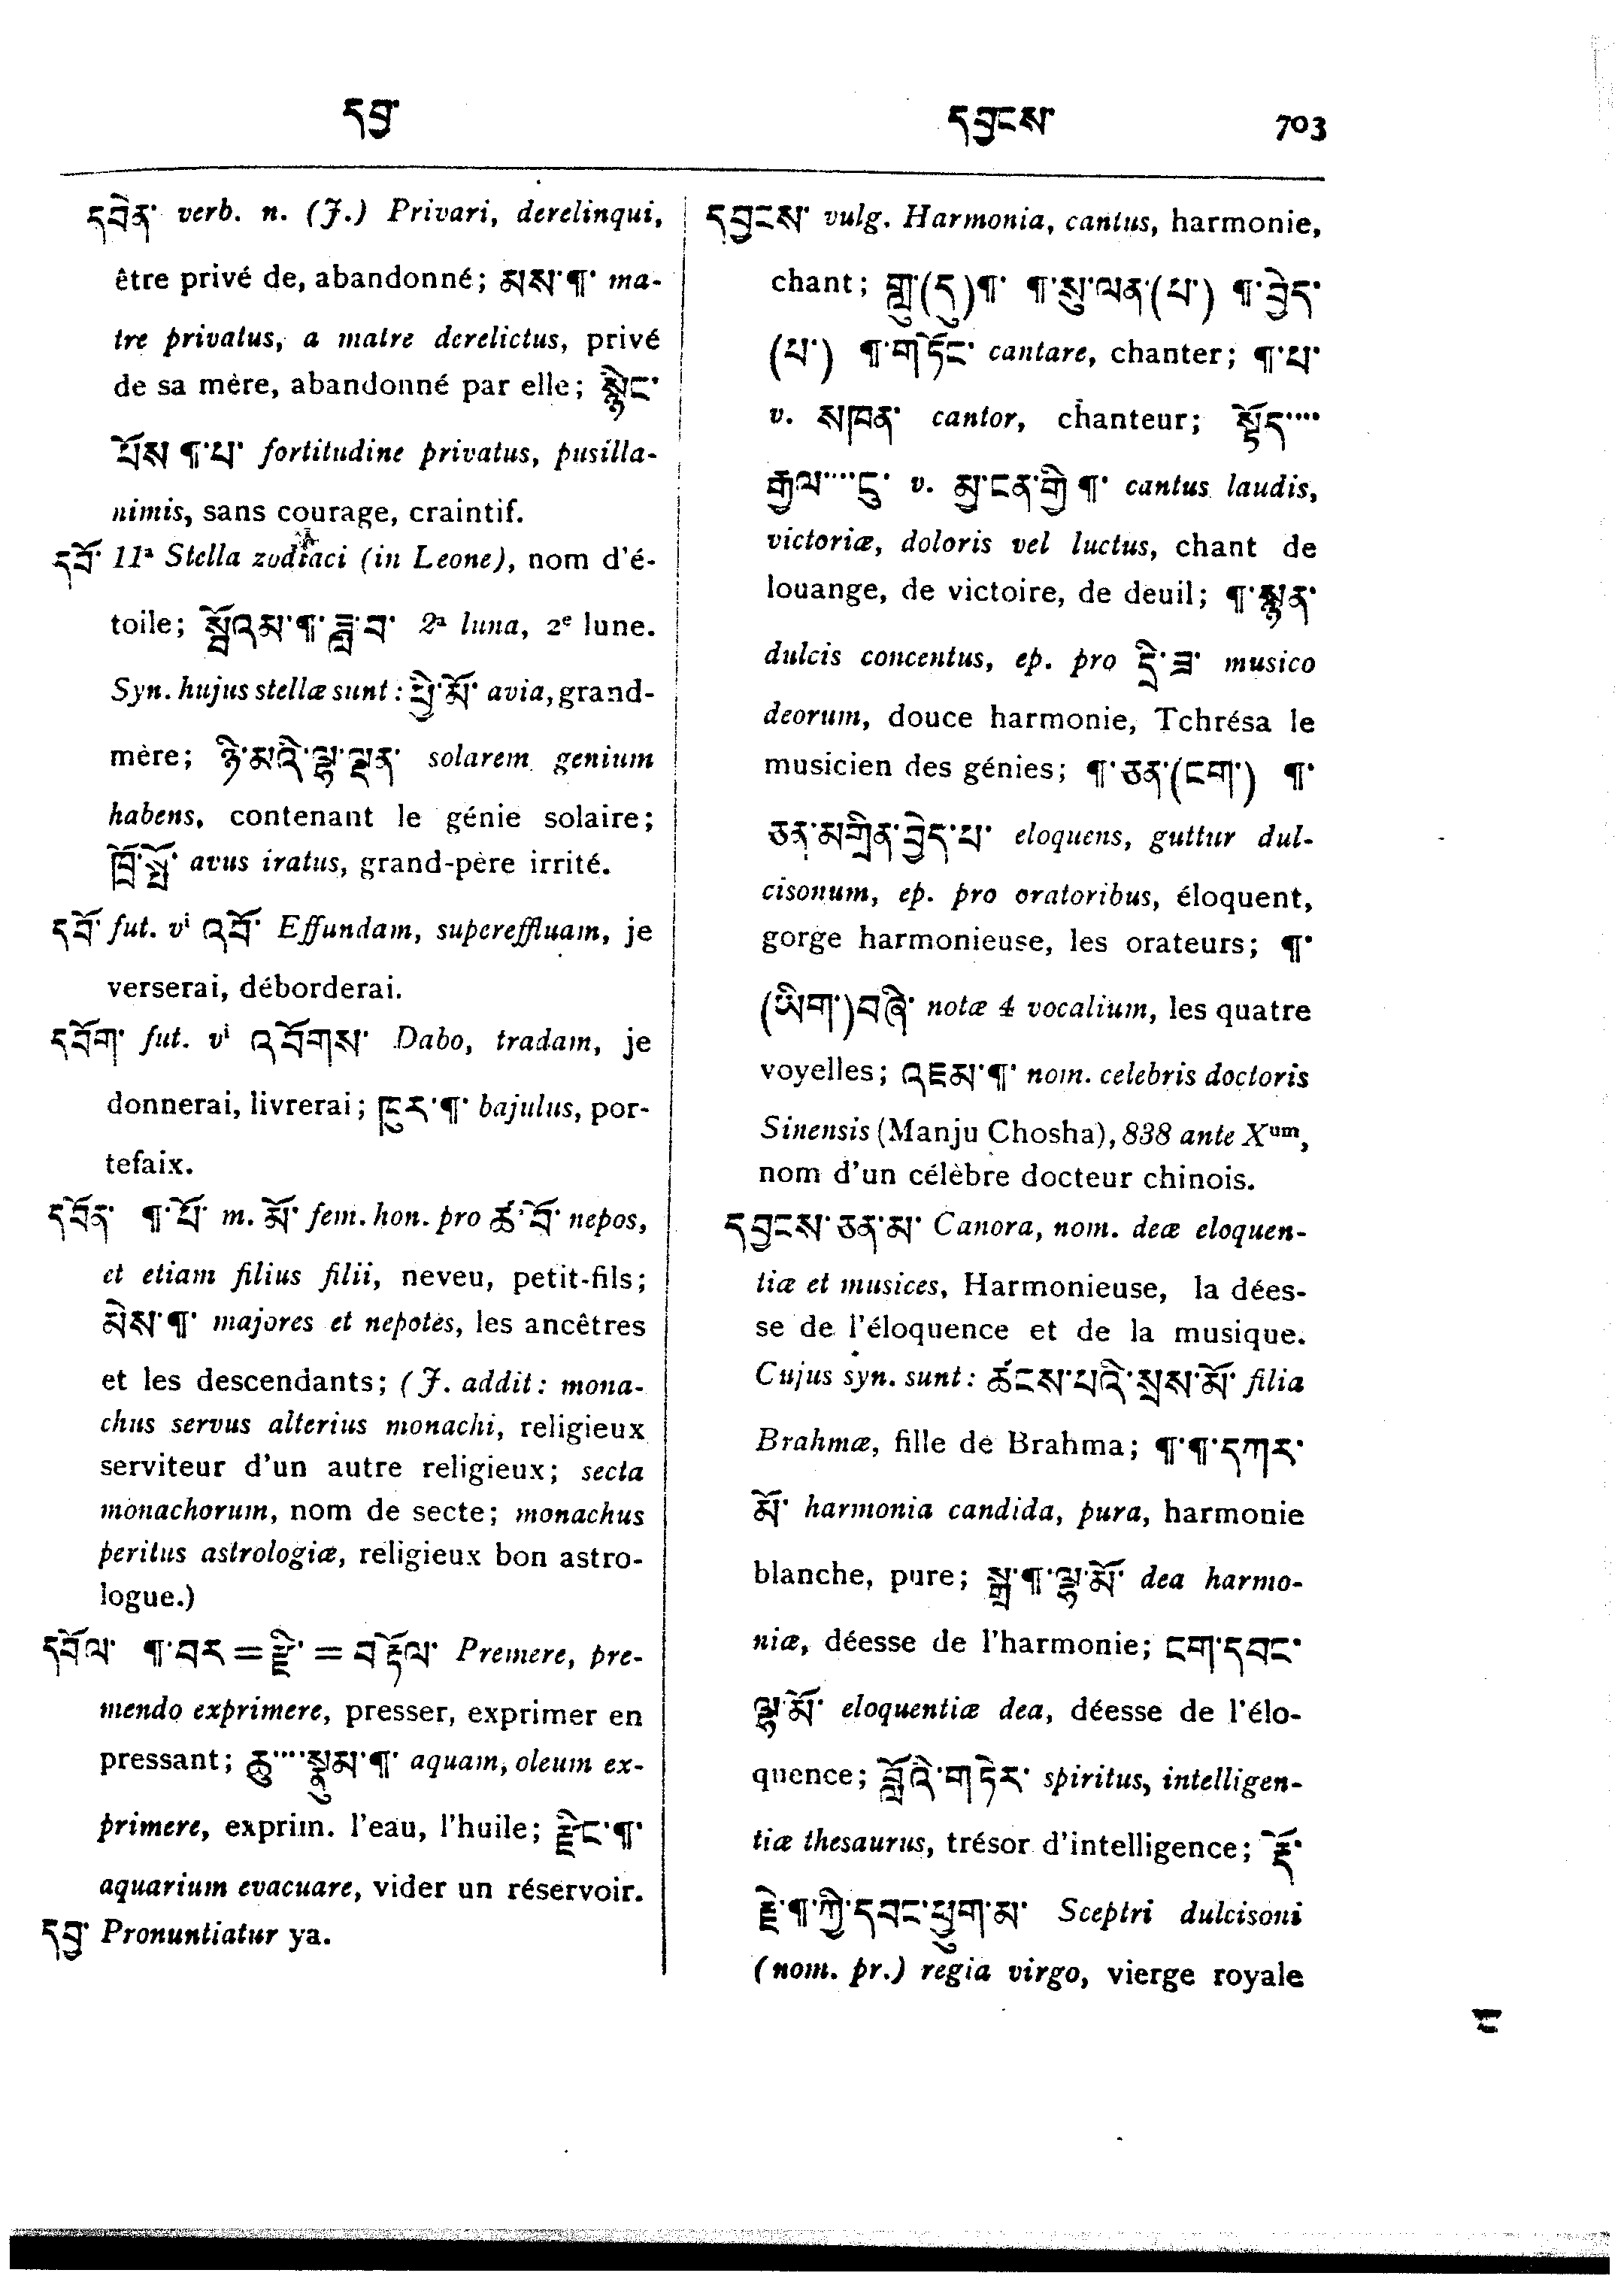 དབྱ་ དབྱངས་ 703
དབེན་ verb. n. (J.) Privari, derelinqui,
être privé de, abandonné; མས་¶་ ma-
tre privatus, a matre derelictus, privé
de sa mère, abandonné par elle; སྙིང་
པོས ¶་པ་ fortitudine privatus, pusilla-
nimis, sans courage, craintif.
དབོ་ 11ª Stella zodiaci (in Leone), nom d'é-
toile; སློའམ་¶་ཟླ་བ་ 2ª luna, 2e lune.
Syn. hujus stellæ sunt: ཕྱི་མོ་ avia, grand-
mère; ཉི་མའི་ལྷ་ལྡན་ solarem genium
habens, contenant le génie solaire;
ཁྲོ་སྤྲོ་ avus iratus, grand-père irrité.
དབོ་ fut. vi འབོ་ Effundam, supereffluam, je
verserai, déborderai.
དབོག་ fut. vi འབོགས་ Dabo, tradam, je
donnerai, livrerai; ཁུར་¶་ bajulus, por-
tefaix.
དབོན་ ¶་པོ་ m. མོ་ fem. hon. pro ཚ་བོ་ nepos,
et etiam filius filii, neveu, petit-fils;
མེས་¶་ majores et nepotes, les ancêtres
et les descendants; (J. addit: mona-
chus servus alterius monachi, religieux
serviteur d'un autre religieux; secta
monachorum, nom de secte; monachus
peritus astrologiæ, religieux bon astro-
logue.)
དབོལ་ ¶་བར = རྫི་ = བརྡོལ་ Premere, pre-
mendo exprimere, presser, exprimer en
pressant; ཆུ་····སྣུམ་¶་ aquam, oleum ex-
primere, exprim. l'eau, l'huile; རྫིང་¶་
aquarium evacuare, vider un réservoir.
དབྱ་ Pronuntiatur ya.
དབྱངས་ vulg. Harmonia, cantus, harmonie,
chant; གླུ་(དུ)¶་ ¶་སུ་ལན་(པ་) ¶་བྱེད་
(པ་) ¶་གཏོང་ cantare, chanter; ¶་པ་
v. མཁན་ cantor, chanteur; སྟོད་····
རྒྱལ་····དུ་ v. མྱ་ངན་གྱི ¶་ cantus laudis,
victoriæ, doloris vel luctus, chant de
louange, de victoire, de deuil; ¶་སྙན་
dulcis concentus, ep. pro དྲི་ཟ་ musico
deorum, douce harmonie, Tchrésa le
musicien des génies; ¶་ཅན་(ངག་) ¶་
ཅན་མགྲིན་བྱེད་པ་ eloquens, guttur dul-
cisonum, ep. pro oratoribus, éloquent,
gorge harmonieuse, les orateurs; ¶་
(ཡིག་)བཞི་ notæ 4 vocalium, les quatre
voyelles; འཇམ་¶་ nom. celebris doctoris
Sinensis (Manju Chosha), 838 ante Xum,
nom d'un célèbre docteur chinois.
དབྱངས་ཅན་མ་ Canora, nom. deæ eloquen-
tiæ et musices, Harmonieuse, la dées-
se de l'éloquence et de la musique.
Cujus syn. sunt: ཚངས་པའི་སྲས་མོ་ filia
Brahmæ, fille de Brahma; ¶་¶་དཀར་
མོ་ harmonia candida, pura, harmonie
blanche, pure; སྒྲ་¶་ལྷ་མོ་ dea harmo-
niæ, déesse de l'harmonie; ངག་དབང་
ལྷ་མོ་ eloquentiæ dea, déesse de l'élo-
quence; བློའི་གཏེར་ spiritus, intelligen-
tiæ thesaurus, trésor d'intelligence; རྡོ་
རྗེ་¶་ཀྱི་དབང་ཕྱུག་མ་ Sceptri dulcisoni
(nom. pr.) regia virgo, vierge royale